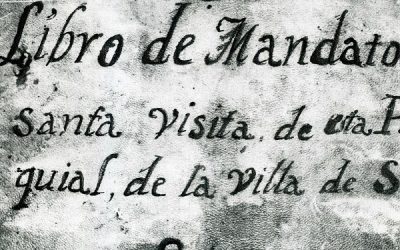 Libro de Mandato
santa visita, de esta P
quial, de la villa de S